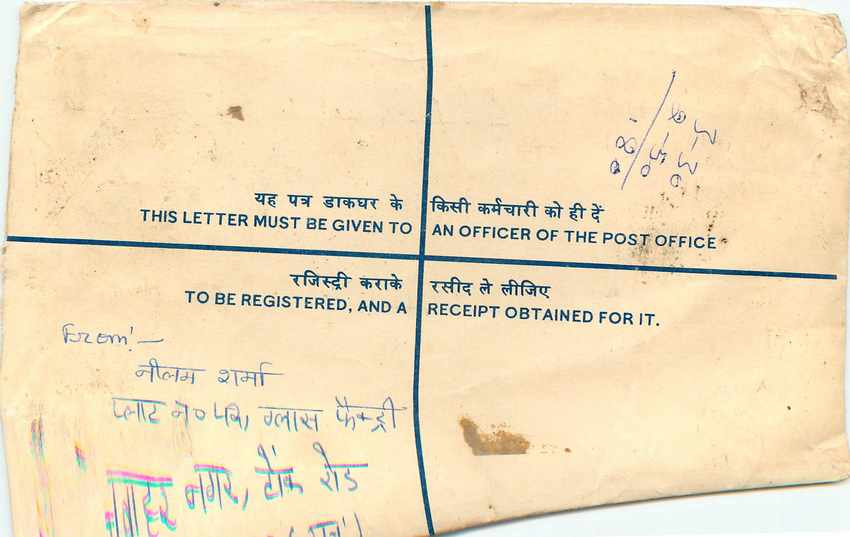 यह पत्र डाकघर के किसी कर्मचारी को ही दें
THIS LETTER MUST BE GIVEN TO AN OFFICER OF THE POST OFFICE
रजिस्ट्री कराके रसीद ले लीजिए
TO BE REGISTERED, AND A RECEIPT OBTAINED FOR IT.
From:-
नीलम शर्मा
प्लाट न०, ग्लास फैक्ट्री
नगर, टोंक रोड